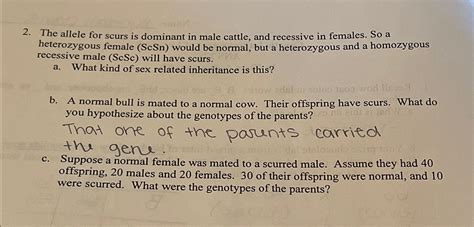 2. The allele for scurs is dominant in male cattle, and recessive in females. So a
heterozygous female (ScSn) would be normal, but a heterozygous and a homozygous
recessive male (ScSc) will have scurs.
a. What kind of sex related inheritance is this?
b. A normal bull is mated to a normal cow. Their offspring have scurs. What do
you hypothesize about the genotypes of the parents?
That one of the parents carried
the gene.
c. Suppose a normal female was mated to a scurred male. Assume they had 40
offspring, 20 males and 20 females. 30 of their offspring were normal, and 10
were scurred. What were the genotypes of the parents?